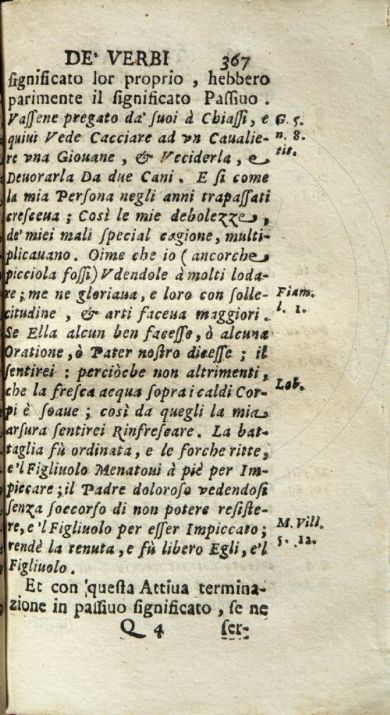 DE' VERBI 367
significato lor proprio, hebbero
parimente il significato Passiuo.
Vassene pregato da' suoi à Chiassi, e G. 5.
quiui Vede Cacciare ad vn Caualie- n. 8.
re vna Giouane, & Vcciderla, e tit.
Deuorarla Da due Cani. E si come
la mia Persona negli anni trapassati
cresceua; Così le mie debolezze,
de' miei mali special cagione, multi-
plicauano. Oime che io (ancorche
picciola fossi) Vdendole à molti loda-
re; me ne gloriaua, e loro con solle- Fiam.
citudine, & arti faceua maggiori. l. 1.
Se Ella alcun ben facesse, ò alcuna
Oratione, ò Pater nostro dicesse; il
sentirei: perciòche non altrimenti,
che la fresca acqua sopra i caldi Cor- Lab.
pi è soaue; così da quegli la mia
arsura sentirei Rinfrescare. La bat-
taglia fù ordinata, e le forche ritte,
e'l Figliuolo Menatoui à piè per Im-
piccare; il Padre doloroso vedendosi
senza soccorso di non potere resiste-
re, e'l Figliuolo per esser Impiccato; M. Vill.
rendè la tenuta, e fù libero Egli, e'l 5. 12.
Figliuolo.
Et con questa Attiua termina-
zione in passiuo significato, se ne
Q 4 ser-